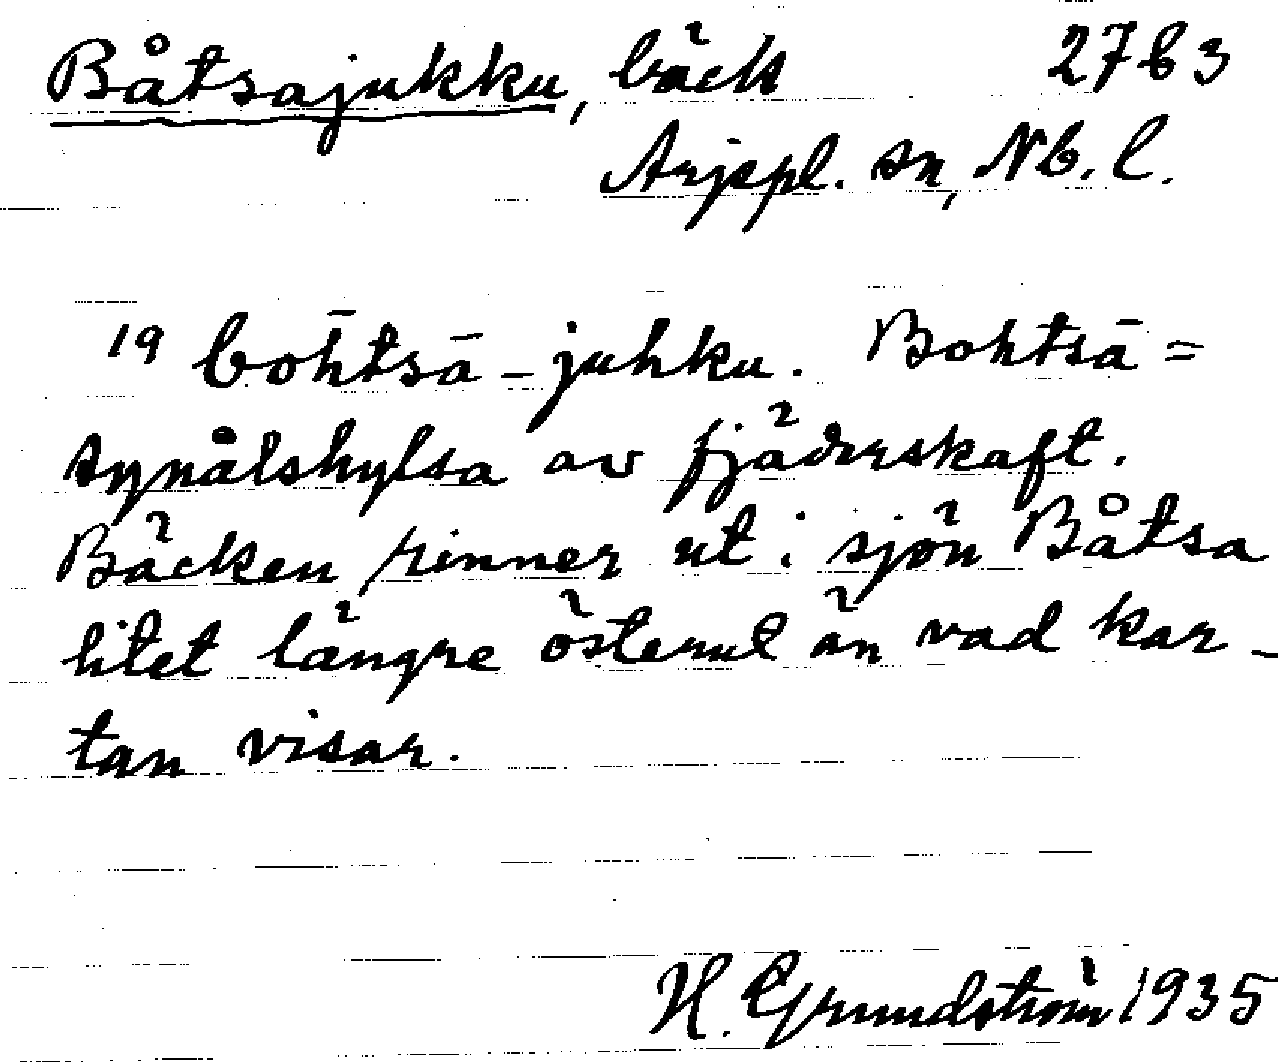 Båtsajukku, bäck 2763
Arjepl. sn, Nb. l.
19 bo͞htsā-juhku. Bohtsā =
synålshylsa av fjäderskaft.
Bäcken rinner ut i sjön Båtsa
litet längre österut än vad kar-
tan visar.
H. Grundström 1935